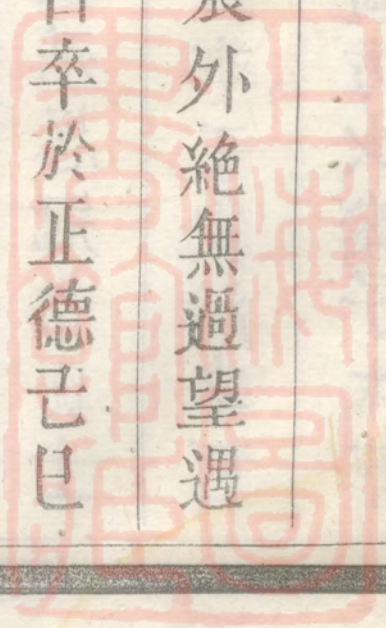 外絶無過望遇
卒於正德己巳